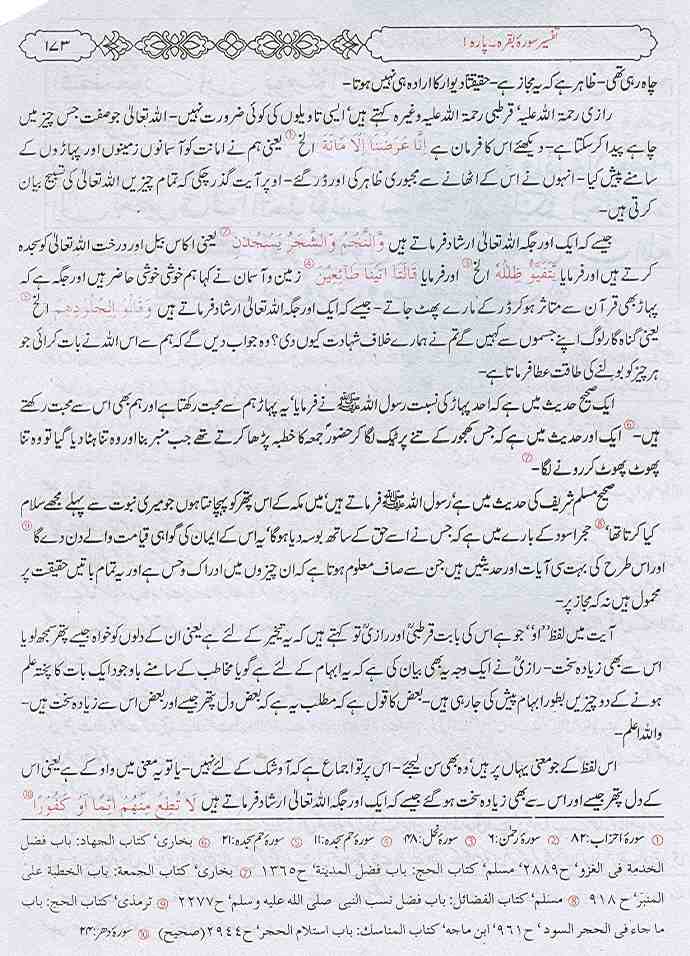 تفسیر سورۂ بقرہ۔ پارہ ۱
۱۷۳
چاہ رہی تھی- ظاہر ہے کہ یہ مجاز ہے- حقیقتاً دیوار کا ارادہ ہی نہیں ہوتا-
رازی رحمۃ اللہ علیہ‘ قرطبی رحمۃ اللہ علیہ وغیرہ کہتے ہیں‘ ایسی تاویلوں کی کوئی ضرورت نہیں- اللہ تعالیٰ جو صفت جس چیز میں
چاہے پیدا کر سکتا ہے- دیکھئے اس کا فرمان ہے اِنَّا عَرَضْنَا الْاَ مَانَةَ الخ ① یعنی ہم نے امانت کو آسمانوں زمینوں اور پہاڑوں کے
سامنے پیش کیا- انہوں نے اس کے اٹھانے سے مجبوری ظاہر کی اور ڈر گئے- اوپر آیت گذر چکی کہ تمام چیزیں اللہ تعالیٰ کی تسبیح بیان
کرتی ہیں-
جیسے کہ ایک اور جگہ اللہ تعالیٰ ارشاد فرماتے ہیں وَّالنَّجْمُ وَالشَّجَرُ يَسْجُدٰنِ ② یعنی اکاس بیل اور درخت اللہ تعالیٰ کو سجدہ
کرتے ہیں اور فرمایا يَتَفَيَّؤُ ظِلٰلُهٗ الخ ③ اور فرمایا قَالَتَا اَتَيْنَا طَائِعِيْنَ ④ زمین و آسمان نے کہا ہم خوشی خوشی حاضر ہیں اور جگہ ہے کہ
پہاڑ بھی قرآن سے متاثر ہو کر ڈر کے مارے پھٹ جاتے- جیسے کہ ایک اور جگہ اللہ تعالیٰ ارشاد فرماتے ہیں وَقَالُوْ الِجُلُوْدِهِمْ الخ ⑤
یعنی گناہ گار لوگ اپنے جسموں سے کہیں گے تم نے ہمارے خلاف شہادت کیوں دی؟ وہ جواب دیں گے کہ ہم سے اس اللہ نے بات کرائی جو
ہر چیز کو بولنے کی طاقت عطا فرماتا ہے-
ایک صحیح حدیث میں ہے کہ احد پہاڑ کی نسبت رسول اللہ ﷺ نے فرمایا‘ یہ پہاڑ ہم سے محبت رکھتا ہے اور ہم بھی اس سے محبت رکھتے
ہیں- ⑥ ایک اور حدیث میں ہے کہ جس کھجور کے تنے پر ٹیک لگا کر حضورؐ جمعہ کا خطبہ پڑھا کرتے تھے جب منبر بنا اور وہ تنا ہٹا دیا گیا تو وہ تنا
پھوٹ پھوٹ کر رونے لگا- ⑦
صحیح مسلم شریف کی حدیث میں ہے‘ رسول اللہ ﷺ فرماتے ہیں‘ میں مکہ کے اس پتھر کو پہچانتا ہوں جو میری نبوت سے پہلے مجھے سلام
کیا کرتا تھا‘ ⑧ حجر اسود کے بارے میں ہے کہ جس نے اسے حق کے ساتھ بوسہ دیا ہوگا‘ یہ اس کے ایمان کی گواہی قیامت والے دن دے گا ⑨
اور اس طرح کی بہت سی آیات اور حدیثیں ہیں جن سے صاف معلوم ہوتا ہے کہ ان چیزوں میں ادراک و حس ہے اور یہ تمام باتیں حقیقت پر
محمول ہیں نہ کہ مجاز پر-
آیت میں لفظ ”اَوْ“ جو ہے اس کی بابت قرطبیؒ اور رازیؒ تو کہتے ہیں کہ یہ تخییر کے لئے ہے یعنی ان کے دلوں کو خواہ جیسے پتھر سمجھ لو یا
اس سے بھی زیادہ سخت- رازیؒ نے ایک وجہ یہ بھی بیان کی ہے کہ یہ ابہام کے لئے ہے گویا مخاطب کے سامنے باوجود ایک بات کا پختہ علم
ہونے کے دو چیزیں بطور ابہام پیش کی جا رہی ہیں- بعض کا قول ہے کہ مطلب یہ ہے کہ بعض دل پتھر جیسے اور بعض اس سے زیادہ سخت ہیں-
واللہ اعلم-
اس لفظ کے جو معنی یہاں پر ہیں‘ وہ بھی سن لیجئے- اس پر تو اجماع ہے کہ آؤ شک کے لئے نہیں- یا تو یہ معنی میں واو کے ہے یعنی اس
کے دل پتھر جیسے اور اس سے بھی زیادہ سخت ہو گئے جیسے کہ ایک اور جگہ اللہ تعالیٰ ارشاد فرماتے ہیں لَا تُطِعْ مِنْهُمْ اٰثِمًا اَوْ كَفُوْرًا ⑩
① سورۂ احزاب: ۸۲ ② سورۂ رحمٰن: ۶ ③ سورۂ نحل: ۴۸ ④ سورۂ حم سجدہ: ۱۱ ⑤ سورۂ حم سجدہ: ۲۱ ⑥ بخاری‘ کتاب الجھاد: باب فضل
الخدمة فی الغزو‘ ح۲۸۸۹‘ مسلم‘ کتاب الحج: باب فضل المدینة‘ ح۱۳۶۵ ⑦ بخاری‘ کتاب الجمعة: باب الخطبة علی
المنبر‘ ح ۹۱۸ ⑧ مسلم‘ کتاب الفضائل: باب فضل نسب النبی صلی الله علیه وسلم‘ ح۲۲۷۷ ⑨ ترمذی‘ کتاب الحج: باب
ما جاء فی الحجر السود‘ ح۹۶۱‘ ابن ماجه‘ کتاب المناسك: باب استلام الحجر‘ ح۲۹۴۴ (صحیح) ⑩ سورۂ دھر: ۲۴